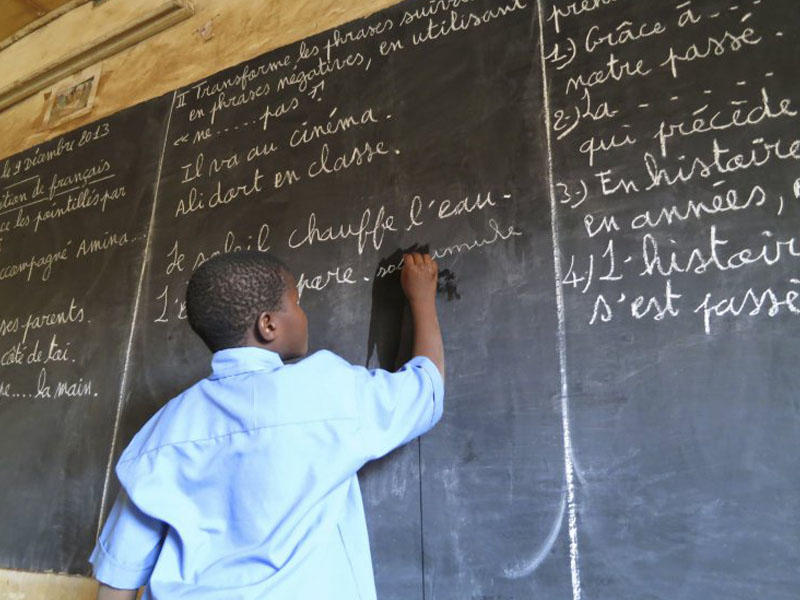 le 9 Décembre 2013
tion de français
ce les pointillés par
accompagné Amina...
ses parents.
côté de toi.
....la main.
II Transforme les phrases
en phrases négatives, en utilisant
« ne ...... pas »
Il va au cinéma.
Ali dort en classe.
Le soleil chauffe l'eau.
1) Grâce à
notre passé.
2) La
qui précède
3) En histoire
en années,
4) L'histoire
s'est passé